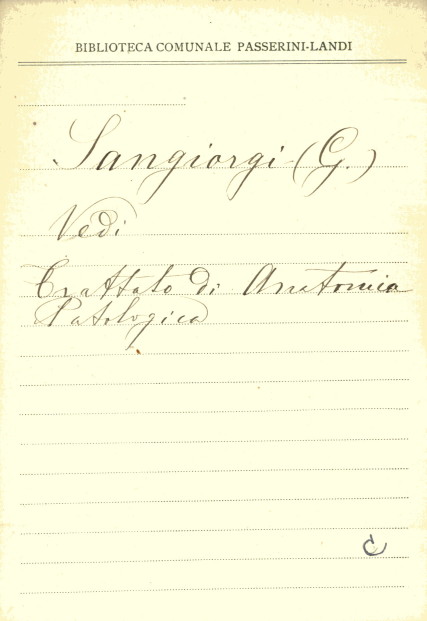 BIBLIOTECA COMUNALE PASSERINI-LANDI
Sangiorgi (G.)
Vedi
Trattato di Anatomia
Patologica